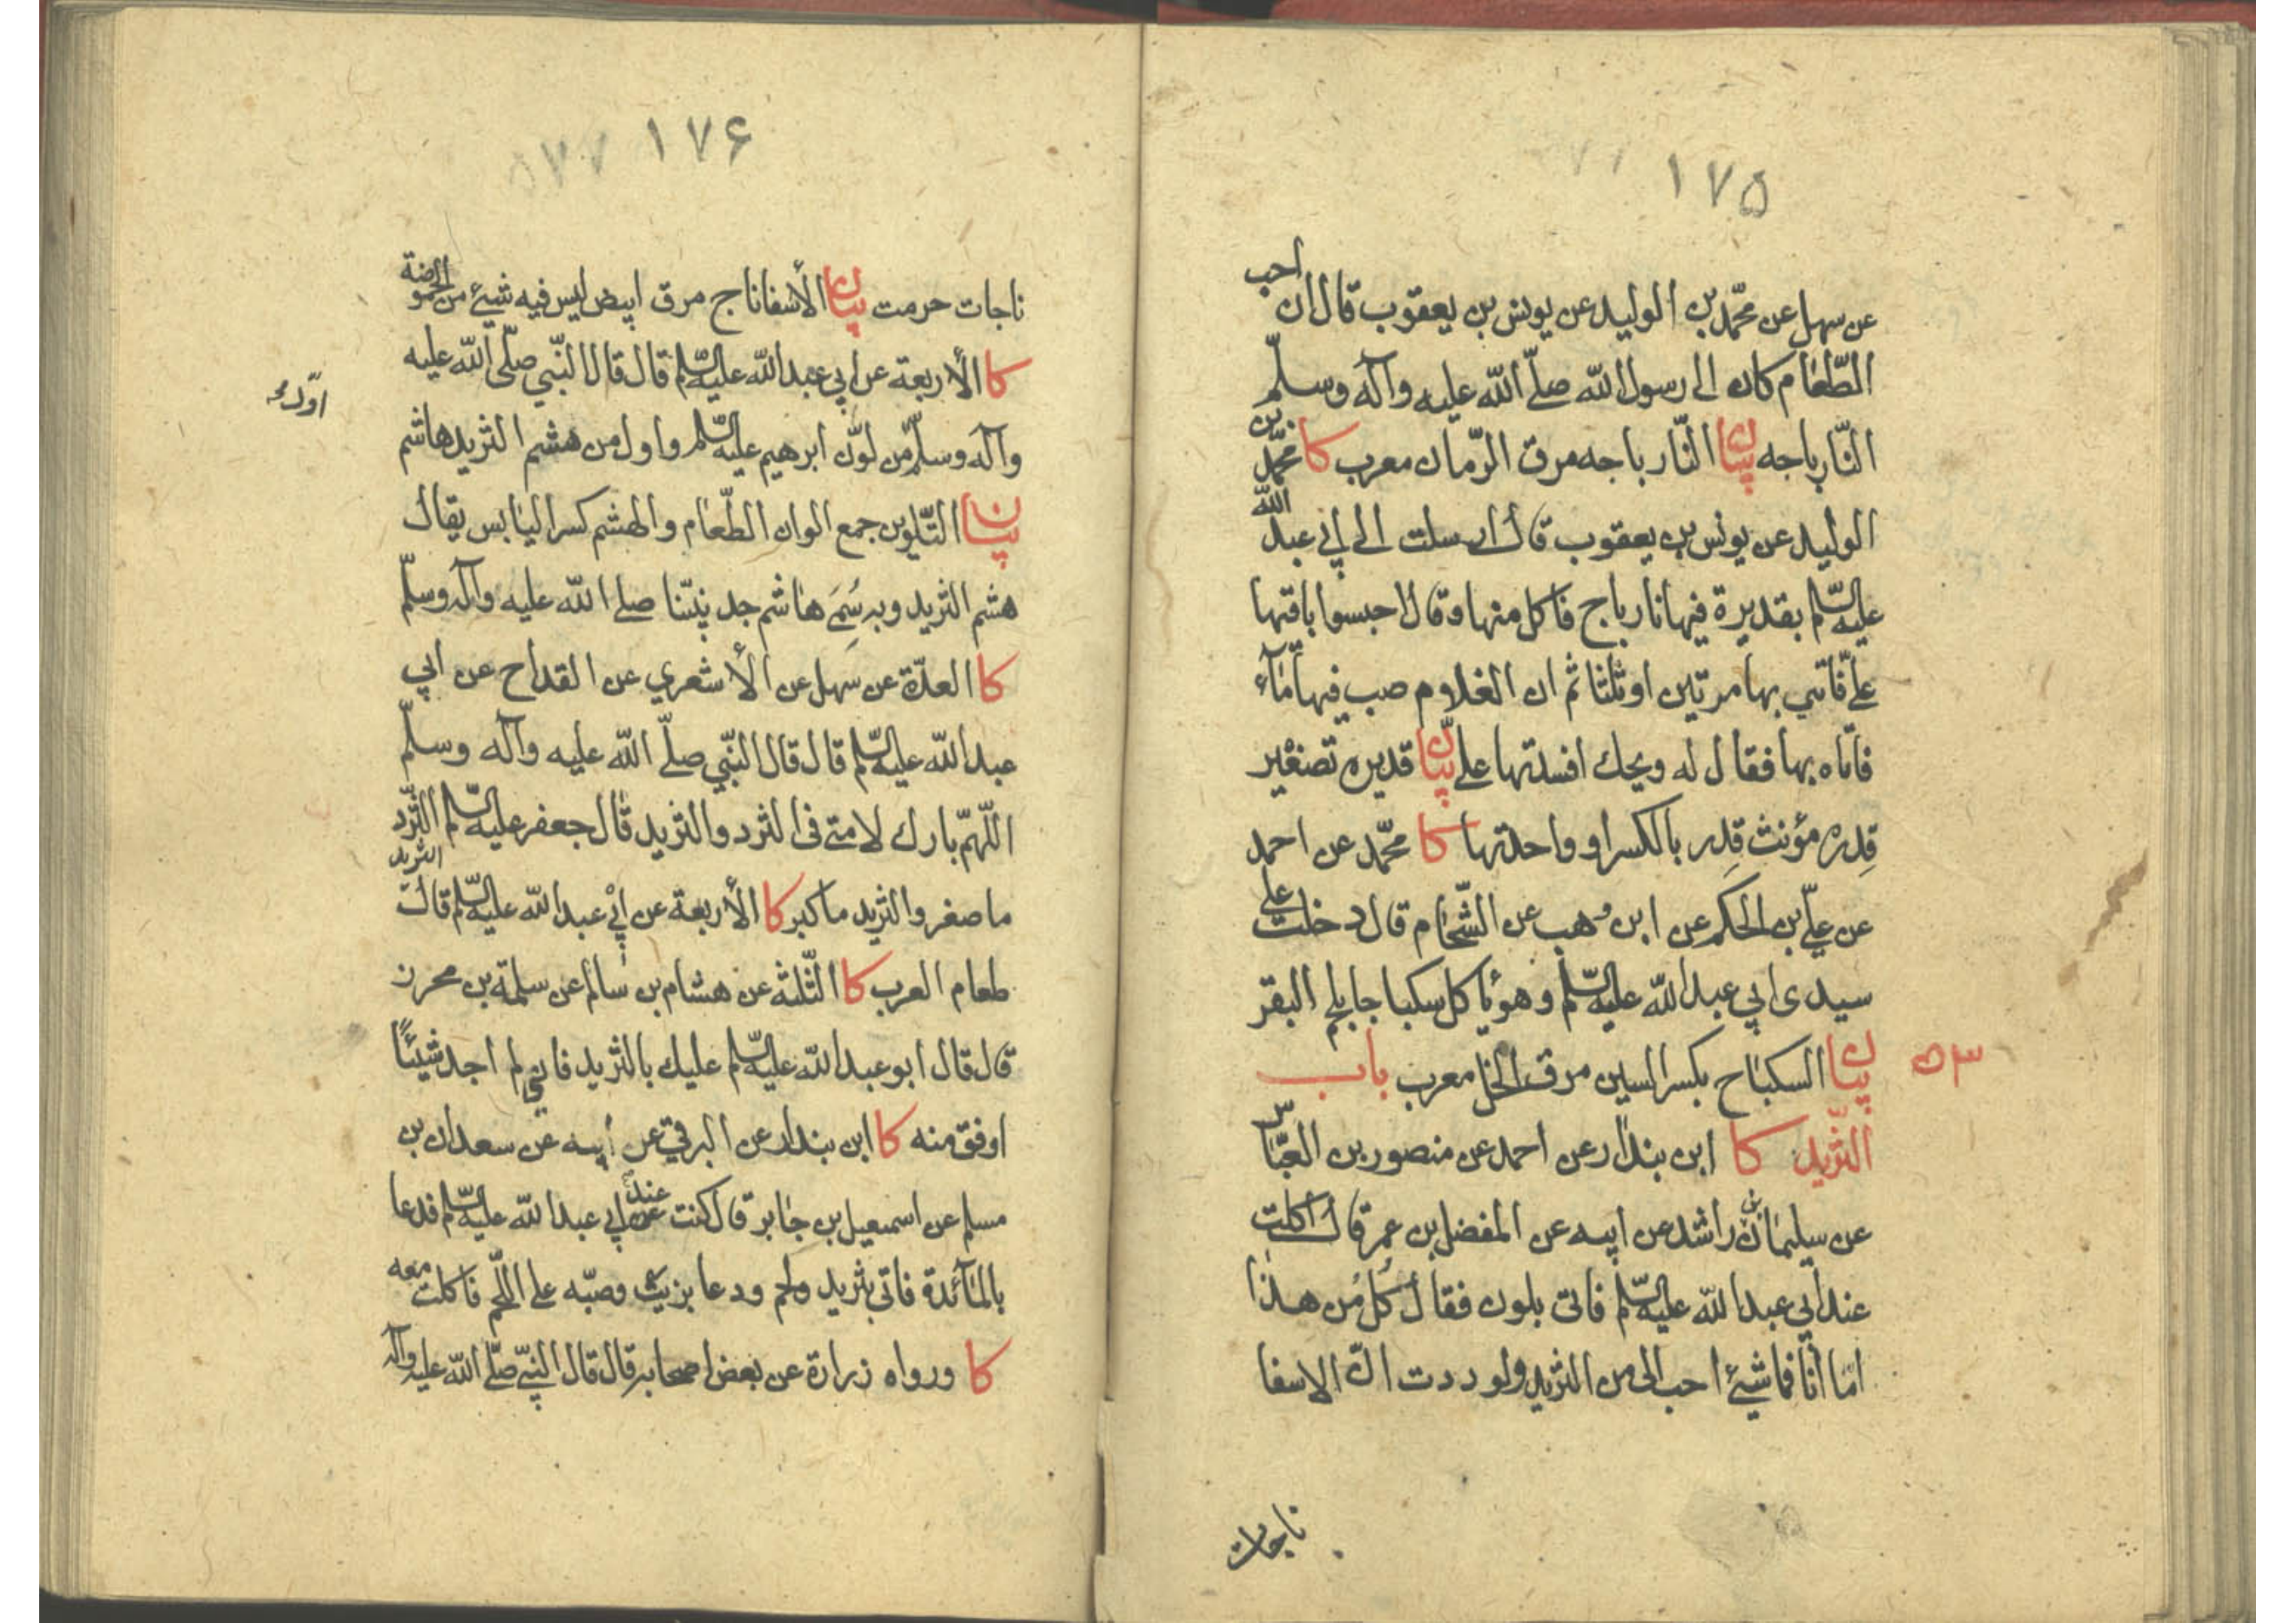 ۱۷۵
عن سهل عن محمّد بن الوليد عن يونس بن يعقوب قال ان احب
الطّعام كان الى رسول الله صلّى الله عليه وآله وسلّم
النّارباجه بيان النّارباجه مرق الرّمان معرب كا محمّد بن
الوليد عن يونس بن يعقوب قال ارسلت الى ابي عبد الله
عليه السّلم بقديرة فيها نارباج فاكل منها وقال احبسوا باقتها
علىّ فاتي بها مرتين او ثلثا ثم ان الغلام صب فيها مآء
فاتاه بها فقال له ويحك افسدتها على بيان قديره تصغير
قِدره مؤنث قِدر بالكسر او واحدتها كا محمّد عن احمد
عن علىّ بن الحكم عن ابن وهب عن الشّحّام قال دخلت على
سيدى ابي عبد الله عليه السّلم وهو ياكل سكباجا بلحم البقر
۵۳
بيان السكباج بكسر السين مرق الخل معرب باب
الثّريد كا ابن بندار عن احمد عن منصور بن العبّاس
عن سليمان بن راشد عن ابيه عن المفضل بن عمر قال اكلت
عند ابي عبد الله عليه السّلم فاتى بلون فقال كُل مِن هذا
امّا انا فما شيئ احب الىّ من الثريد ولوددت انّ الاسفا
ناجات
۱۷۶
۵۷۷
ناجات حرمت بيان الأسفاناج مرق ابيض ليس فيه شيئ من الحموضة
كا الأربعة عن ابي عبد الله عليه السّلم قال قال النّبي صلّى الله عليه
اوّل
وآله وسلّم من لوّن ابرهيم عليه السّلم واول من هشم الثريد هاشم
بيان التّلوين جمع الوان الطّعام والهشم كسر اليابس يقال
هشم الثريد وبه سُمِّيَ هاشم جد نبيّنا صلى الله عليه وآله وسلّم
كا العدّة عن سهل عن الأشعري عن القداح عن ابي
عبد الله عليه السّلم قال قال النّبي صلّى الله عليه وآله وسلّم
اللّهمّ بارك لامتى فى الثرد والثريد قال جعفر عليه السّلم الثّرد
ما صغر والثريد ما كبر كا الأربعة عن ابي عبد الله عليه السّلم قال الثريد
طعام العرب كا الثّلثة عن هشام بن سالم عن سلمة بن محرز
قال قال ابو عبد الله عليه السّلم عليك بالثريد فاني لم اجد شيئًا
اوفق منه كا ابن بندار عن البرقي عن ابيه عن سعدان بن
مسلم عن اسمعيل بن جابر قال كنت عند ابي عبد الله عليه السّلم فدعا
بالمآئدة فاتى بثريد ولحم ودعا بزيت وصبّه على اللّحم فاكلت معه
كا ورواه زرارة عن بعض اصحابه قال قال النّبيّ صلّى الله عليه وآله